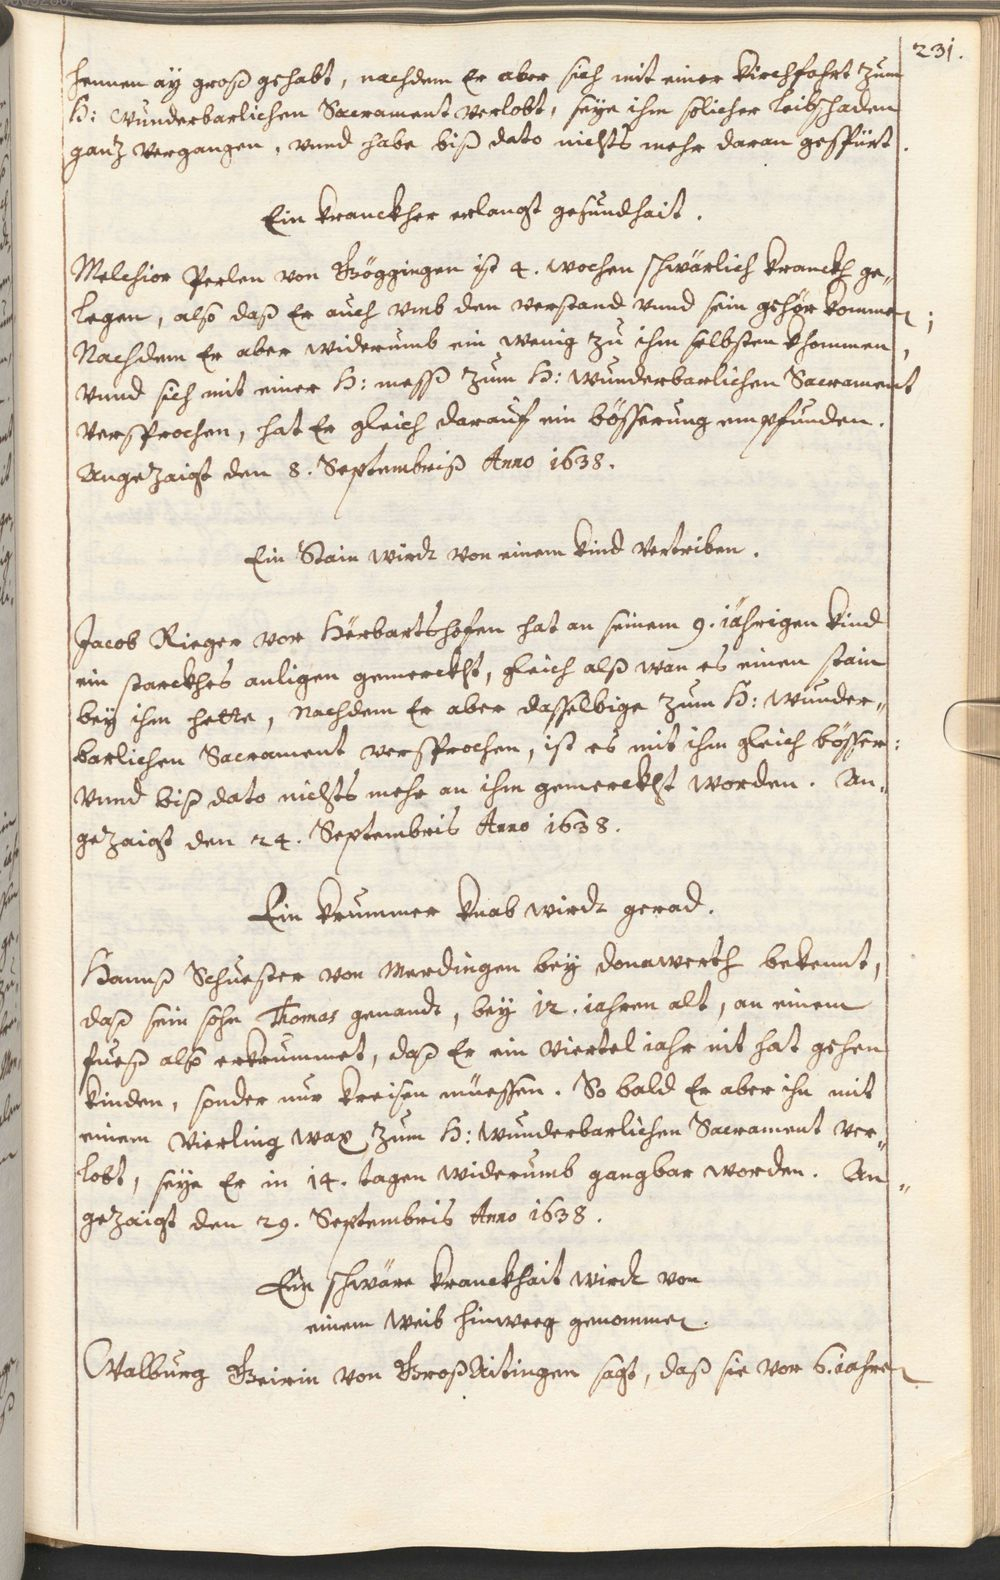 231.
hennen aÿ groß gehabt, nachdem Er aber sich mit einer Kirchfahrt zum
H: Wunderbarlichen Sacrament verlobt, seÿe ihm solicher leibschaden
ganz vergangen, vnnd habe biß dato nichts mehr daran gespürt.
Ein Kranckher erlangt gesundhait.
Melchior Perlen von Göggingen ist 4. wochen schwärlich kranckh ge„
legen, also daß Er auch vmb den verstand vnnd sein gehör kommen;
Nachdem Er aber widerumb ein wenig zu ihm selbsten khommen,
vnnd sich mit einer H: mess zum H: Wunderbarlichen Sacrament
versprochen, hat Er gleich darauf ein bösserung empfunden.
Angezaigt den 8. Septembriß Anno 1638.
Ein Stain wirdt von einem Kind vertriben.
Jacob Rieger von Herbartshofen hat an seinem 9. iährigen Kind
ein starckhes anligen gemerckht, gleich alß wan es einen stain
beÿ ihm hette, Nachdem Er aber dasselbige zum H: Wunder„
barlichen Sacrament versprochen, ist es mit ihm gleich bösser:
vnnd biß dato nichts mehr an ihm gemerckht worden. An„
gezaigt den 24. Septembris Anno 1638.
Ein Krummer Knab wirdt gerad.
Hannß Schuester von Merdingen beÿ Donawerth bekennt,
daß sein sohn Thomas genandt, beÿ 12. iahren alt, an einem
fueß also erkrummet, daß Er ein viertel iahr nit hat gehen
kinden, sonder nur kreisen müessen. So bald Er aber ihn mit
einem vierling wax zum H: Wunderbarlichen Sacrament ver„
lobt, seÿe Er in 14. tagen widerumb gangbar worden. An„
gezaigt den 29. Septembris Anno 1638.
Ein schwäre Kranckhait wirdt von
einem Weib hinweeg genommen.
Walburg Geirin von GroßAitingen sagt, daß sie vor 6. iahren